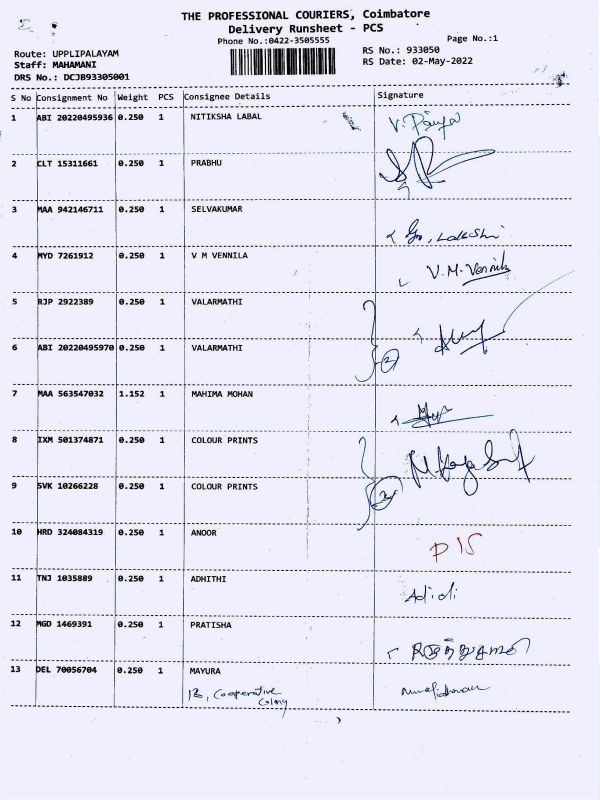 THE PROFESSIONAL COURIERS, Coimbatore
Delivery Runsheet - PCS
Phone No.:0422-3505555
Page No.:1
Route: UPPLIPALAYAM
RS No.: 933050
Staff: MAHAMANI
RS Date: 02-May-2022
DRS No.: DCJB93305001
S No Consignment No Weight PCS Consignee Details Signature
1 ABI 20220495936 0.250 1 NITIKSHA LABAL V. Priya
2 CLT 15311661 0.250 1 PRABHU
3 MAA 942146711 0.250 1 SELVAKUMAR
4 MYD 7261912 0.250 1 V M VENNILA V.M. Vennila
5 RJP 2922389 0.250 1 VALARMATHI
6 ABI 20220495970 0.250 1 VALARMATHI 2
7 MAA 563547032 1.152 1 MAHIMA MOHAN
8 IXM 501374871 0.250 1 COLOUR PRINTS
9 SVK 10266228 0.250 1 COLOUR PRINTS
10 HRD 324084319 0.250 1 ANOOR D15
11 TNJ 1035889 0.250 1 ADHITHI Adidi
12 MGD 1469391 0.250 1 PRATISHA
13 DEL 70056704 0.250 1 MAYURA
12, Cooperative
Colony